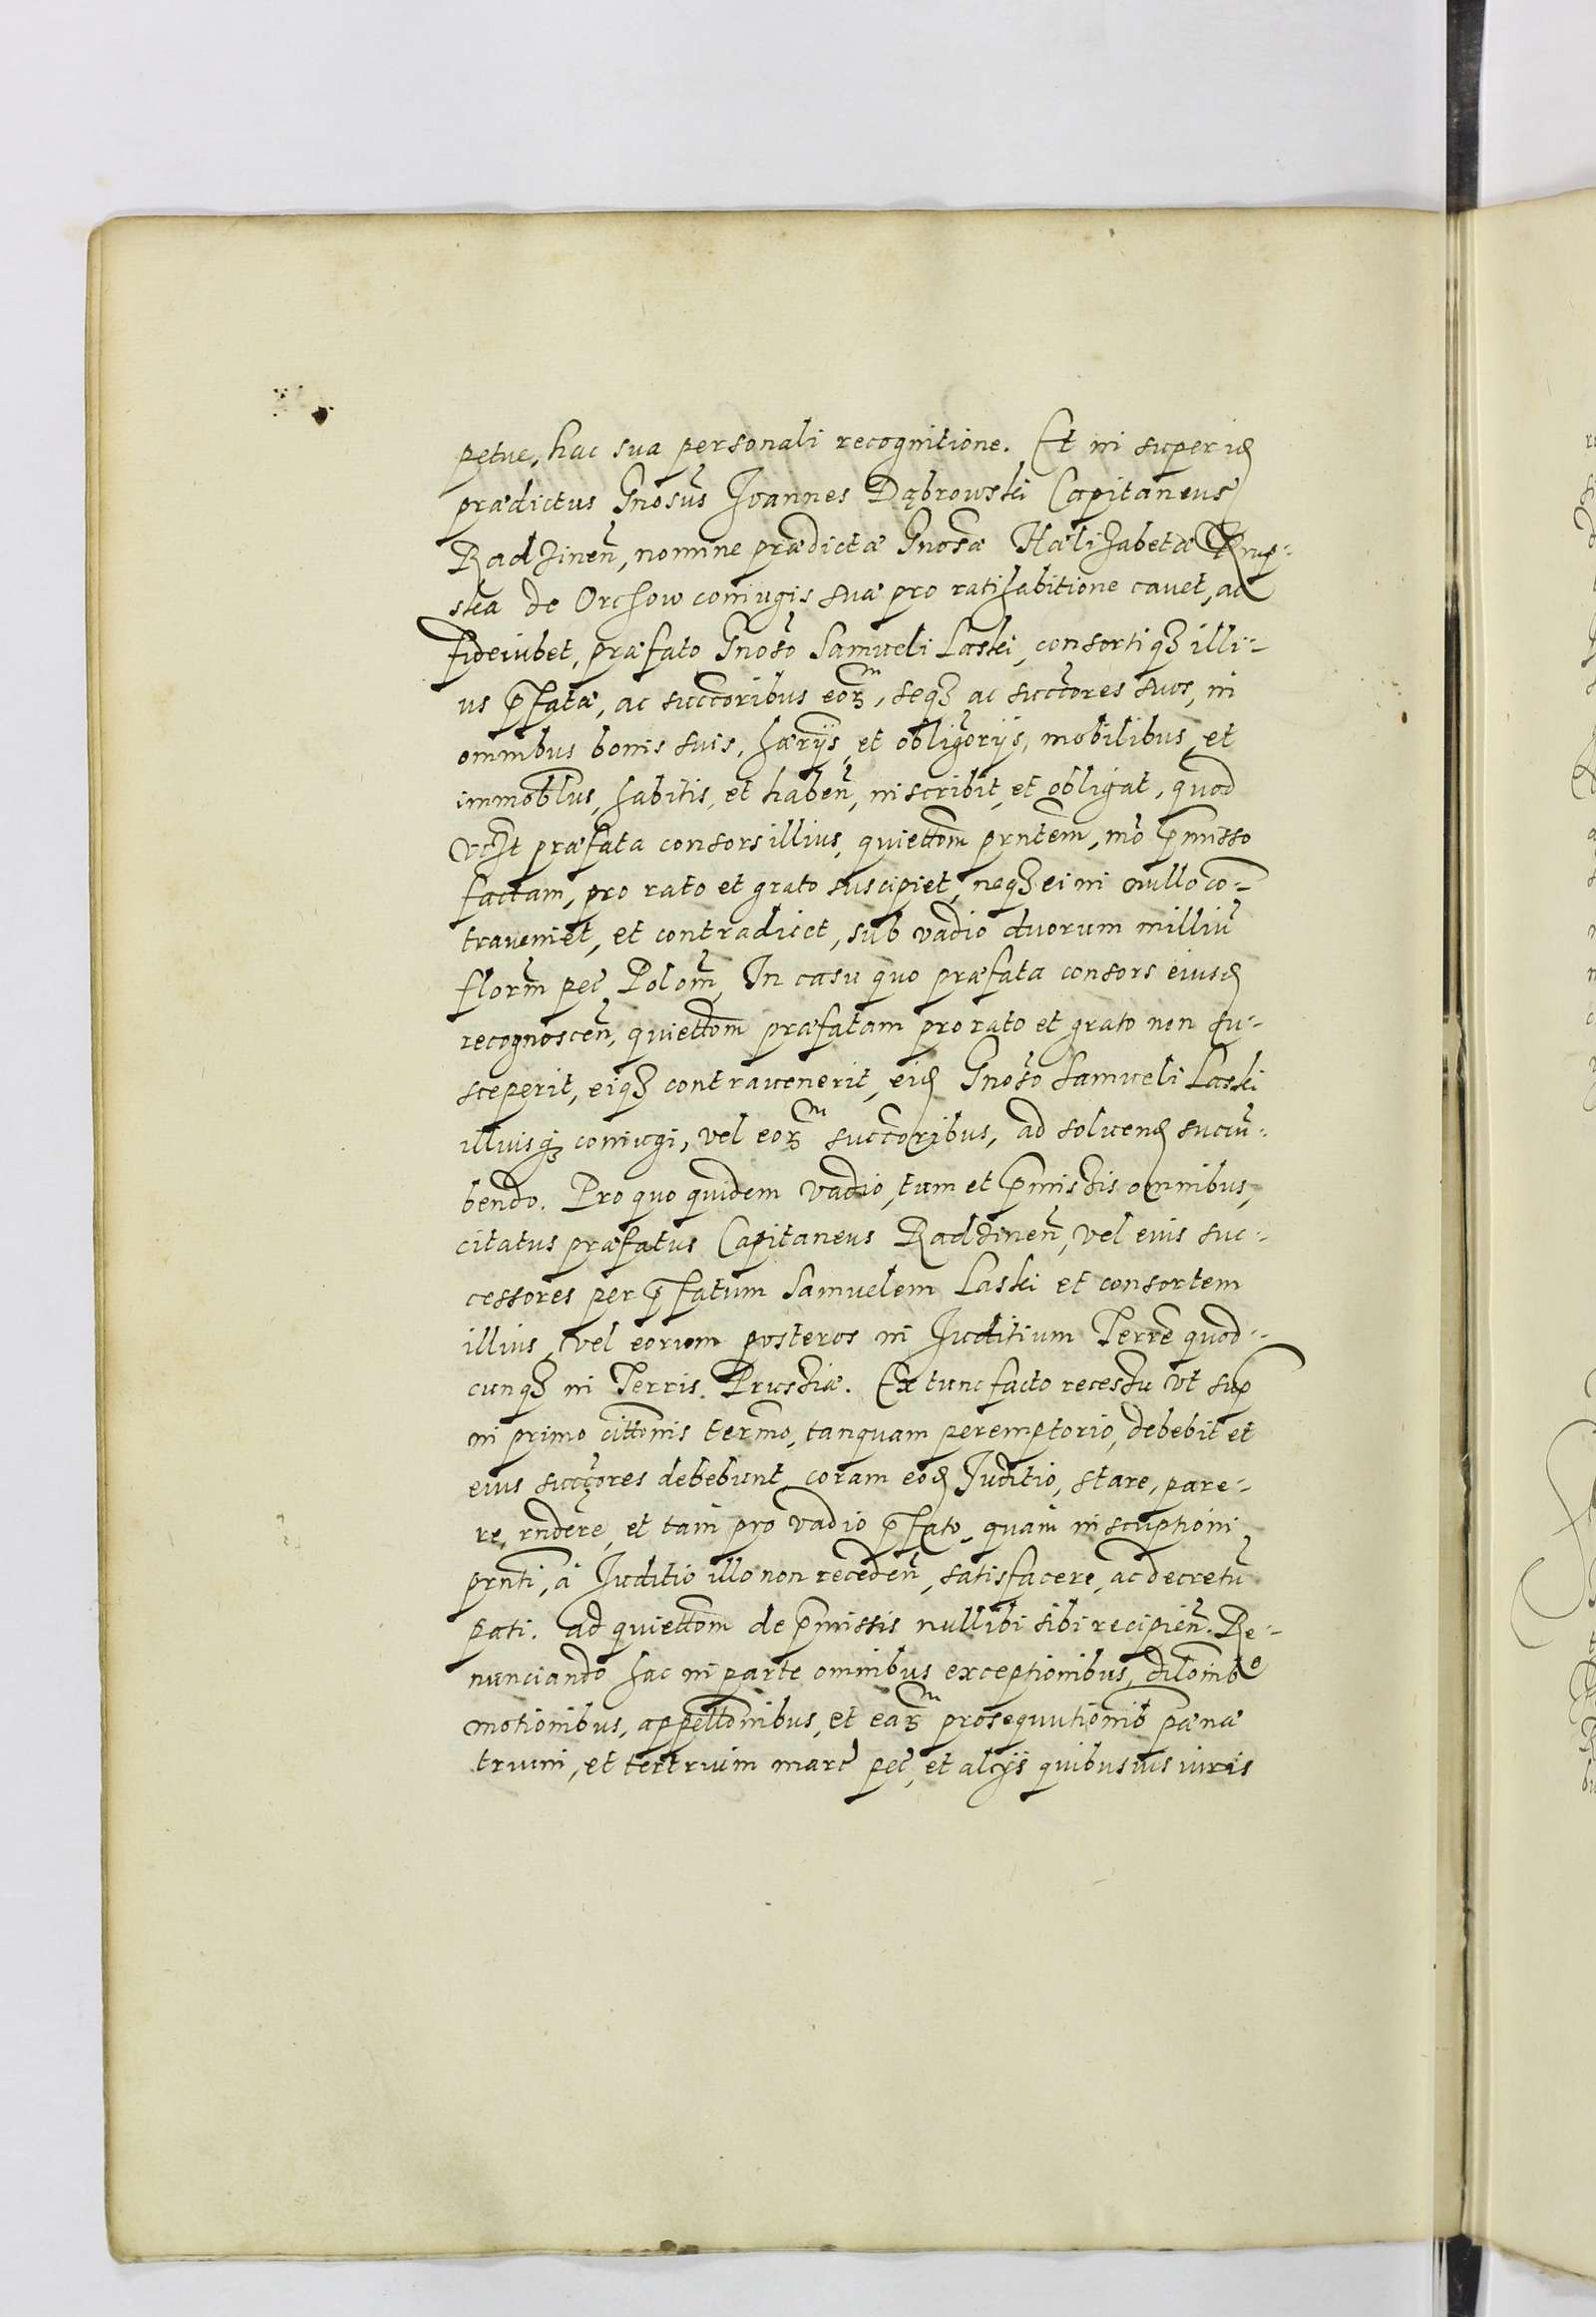 petue, hac sua personali recognitione. Et in super id
prædictus Gnosus Joannes Dąbrowski Capitaneus
Radzinen, nomine prædictæ Gnosæ Hælisabetæ Krup-
ska de Orchow coniugis suæ pro ratihabitione cavet, ac
fideiubet, præfato Gnoso Samueli Laski, consortiqz illi-
us pfatæ, ac succoribus eorm, seqz ac succores suos, in
omnibus bonis suis, hæriis, et obligoriis, mobilibus, et
immoblus, habitis, et haben, inscribit, et obligat, quod
præfata consors illius, quiettom prntem, mo pmisso
factam, pro rato et grato suscipiet, neqz ei in nullo co-
traveniet, et contradicet, sub vadio duorum milliu
florm pec Polom, In casu quo præfata consors eiusd
recognoscen, quiettom præfatam pro rato et grato non su-
sceperit, eiqz contravenerit, eid Gnoso Samueli Laski
illiusqz coniugi, vel eorm succoribus, ad solvend succu-
bendo. Pro quo quidem vadio, tum et pmissis omnibus,
citatus præfatus Capitaneus Radzinen, vel eius suc-
cessores per pfatum Samuelem Laski et consortem
illius, vel eorum posteros in Juditium Terre quod-
cunqz in Terris. Prussiæ. Ex tunc facto recessu ut sup
in primo cittonis termo, tanquam peremptorio, debebit et
eius succores debebunt coram eod Juditio, stare, pare-
re, rndere, et tam pro vadio pfato, quam inscriptioni
prnti, à Juditio illo non receden, satisfacere, ac decretu
pati. ad quiettom de pmissis nullibi sibi recipien. Re-
nunciando hac in parte omnibus exceptionibus, dilonib9
motionibus, appellonibus, et earm prosequutionib pænæ
trium, et ter trium marc pec, et aliis quibusvis iuris